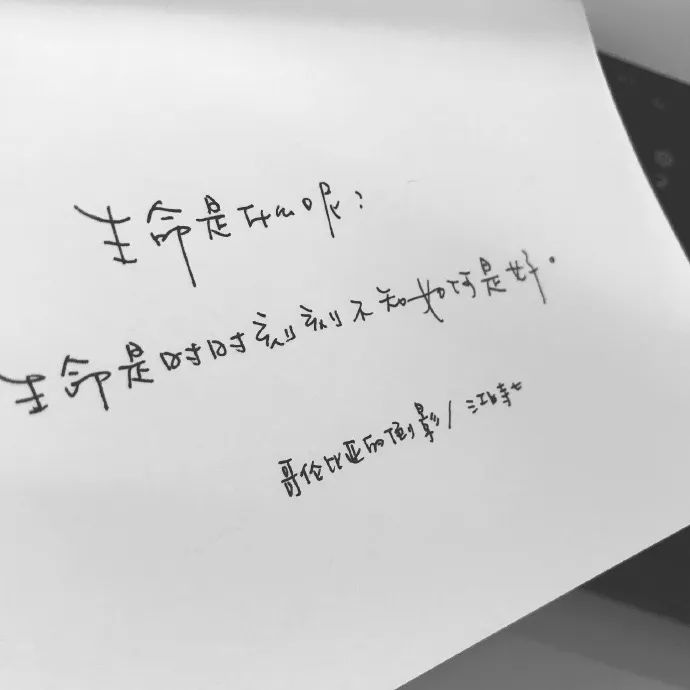 生命是什么呢？
生命是时时刻刻不知如何是好。
哥伦比亚的倒影/